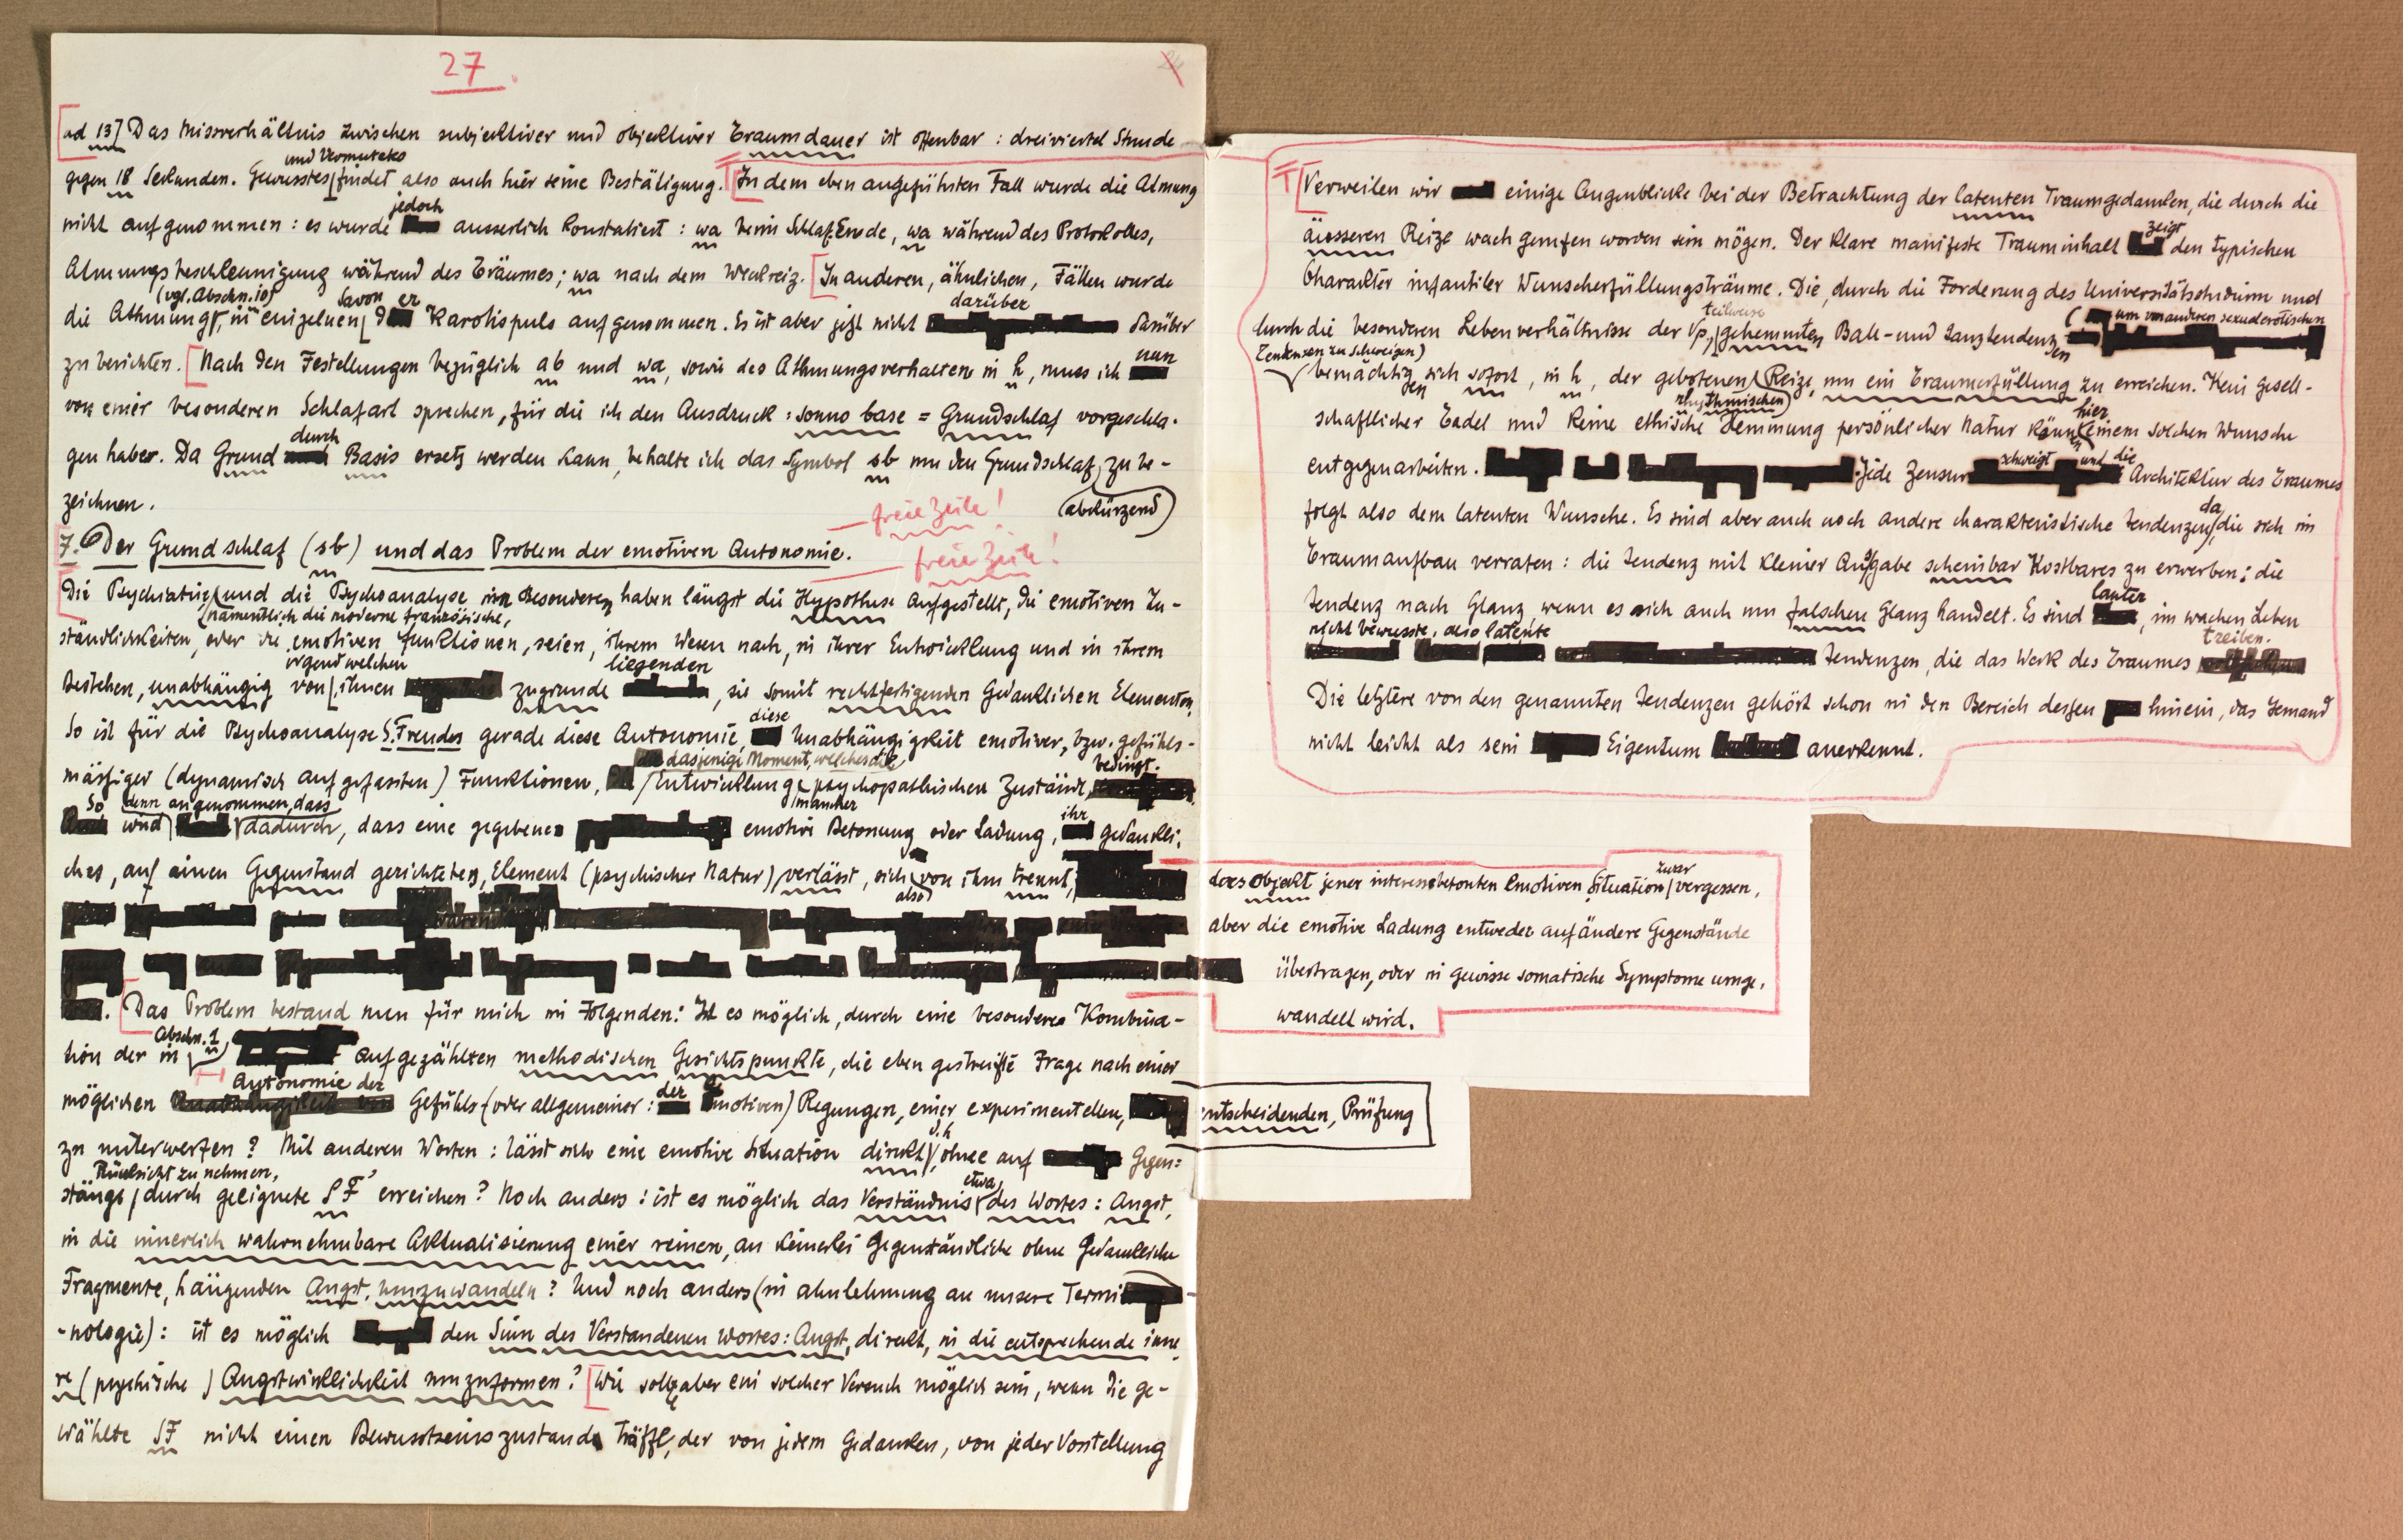 27
ad 13] Das Missverhältnis zwischen subjektiver und objektiver Traumdauer ist offenbar : dreiviertel Stunde
und Vermutetes
gegen 18 Sekunden. Gewusstes findet also auch hier seine Bestätigung. In dem eben angeführten Fall wurde die Atmung
jedoch
nicht aufgenommen : es wurde ausserlich konstatiert : wa beim Schlaf-Ende, wa während des Protokolles,
Atmungsbeschleunigung während des Träumes; wa nach dem Weckreiz. In anderen, ähnlichen, Fällen wurde
(vgl. Abschn. 10) davon er darüber
die Athmung, in einzelnen d Karotispuls aufgenommen. Es ist aber jetzt nicht darüber
zu berichten. Nach den Festellungen bezüglich ab und wa, sowie des Athmungsverhaltens in h, muss ich nun
von einer besonderen Schlafart sprechen, für die ich den Ausdruck : sonno base = Grundschlaf vorgeschla-
durch
gen habe. Da Grund Basis ersetzt werden kann, behalte ich das Symbol sb um den Grundschlaf zu be-
(abkürzend)
zeichnen.
freie Zeile!
7. Der Grundschlaf (sb) und das Problem der emotiven Autonomie.
freie Zeile!
Die Psychiatrie und die Psychoanalyse im Besonderen haben längst die Hypothese aufgestellt, die emotiven Zu-
(namentlich die moderne französische,
ständlichkeiten, oder die emotiven Funktionen, seien, ihrem Wesen nach, in ihrer Entwicklung und in ihrem
irgendwelchen liegenden
Bestehen, unabhängig von ihnen zugrunde , sie somit rechtfertigenden Gedanklichen Elementen.
So ist für die Psychoanalyse S. Freuds gerade diese Autonomie, diese Unabhängigkeit emotiver, bzw. gefühls-
dasjenige Moment, welches die bedingt.
mässiger (dynamisch aufgefassten) Funktionen, Entwicklung mancher psychopathischen Zustände
So denn angenommen, dass
wird dadurch, dass eine gegebene emotive Betonung oder Ladung, ihr gedankli-
ches, auf einen Gegenstand gerichtetes, Element (psychischer Natur) verlässt, sich also von ihm trennt,
das Objekt jener interessebetonten emotiven Situation zwar vergessen,
aber die emotive Ladung entweder auf andere Gegenstände
übertragen, oder in gewisse somatische Symptome umge-
wandelt wird.
Das Problem bestand nun für mich in Folgenden: Ist es möglich, durch eine besondere Kombina-
Abschn. 1
tion der in aufgezählten methodischen Gesichtspunkte, die eben gestreifte Frage nach einer
Autonomie der
möglichen Gefühls-(oder allgemeiner : der emotiven) Regungen, einer experimentellen, entscheidenden, Prüfung
zu unterwerfen ? Mit anderen Worten : lässt sich eine emotive Situation direkt, d.h ohne auf Gegen=
Rücksicht zu nehmen, etwa
stände durch geeignete SF erreichen ? Noch anders : ist es möglich das Verständnis des Wortes : Angst,
in die innerlich wahrnehmbare Aktualisierung einer reinen, an keinerlei Gegenständliche ohne Gedankliche
Fragmente, hängenden Angst, umzuwandeln ? Und noch anders (in ahnlehnung an unsere Termi-
-nologie) : ist es möglich den Sinn des Verstandenen Wortes : Angst, direkt, in die entsprechende inne-
re (psychische) Angstwirklichkeit umzuformen ? Wie soll aber ein solcher Versuch möglich sein, wenn die ge-
wählte SF nicht einen Bewusstseinszustand träffe, der von jedem Gedanken, von jeder Vorstellung
Verweilen wir einige Augenblicke bei der Betrachtung der latenten Traumgedanken, die durch die
äusseren Reize wach gerufen worden sein mögen. Der klare manifeste Trauminhalt zeigt den typischen
Charakter infantiler Wunscherfüllungsträume. Die, durch die Forderung des Universitätsstudium und
teilweise um von anderen sexuderotischen
durch die besonderen Lebenverhältnisse der Vp, gehemmten Ball- und Tanztendenzen
Tendenzen zu schweigen)
bemächtigden sich sofort, in h, der gebotenen Reize, um ein Traumerfüllung zu erreichen. Kein Gesell-
rhythmischen hier
schaftlicher Tadel und keine ethische Hemmung persönlicher Natur kann einem solchen Wunsche
entgegenarbeiten. Jede Zensur schweigt und die Architektur des Traumes
folgt also dem latenten Wunsche. Es sind aber auch noch andere charakteristische Tendenzen da, die sich im
Traumaufbau verraten : die Tendenz mit kleiner Ausgabe scheinbar Kostbares zu erwerben ; die
Tendenz nach Glanz, wenn es sich auch um falschen Glanz handelt. Es sind lauter, im wachen Leben
nicht bewusste, also latente treiben.
Tendenzen, die das Werk des Traumes
Die letztere von den genannten Tendenzen gehört schon in den Bereich dessen hinein, das Jemand
nicht leicht als sein Eigentum anerkennt.